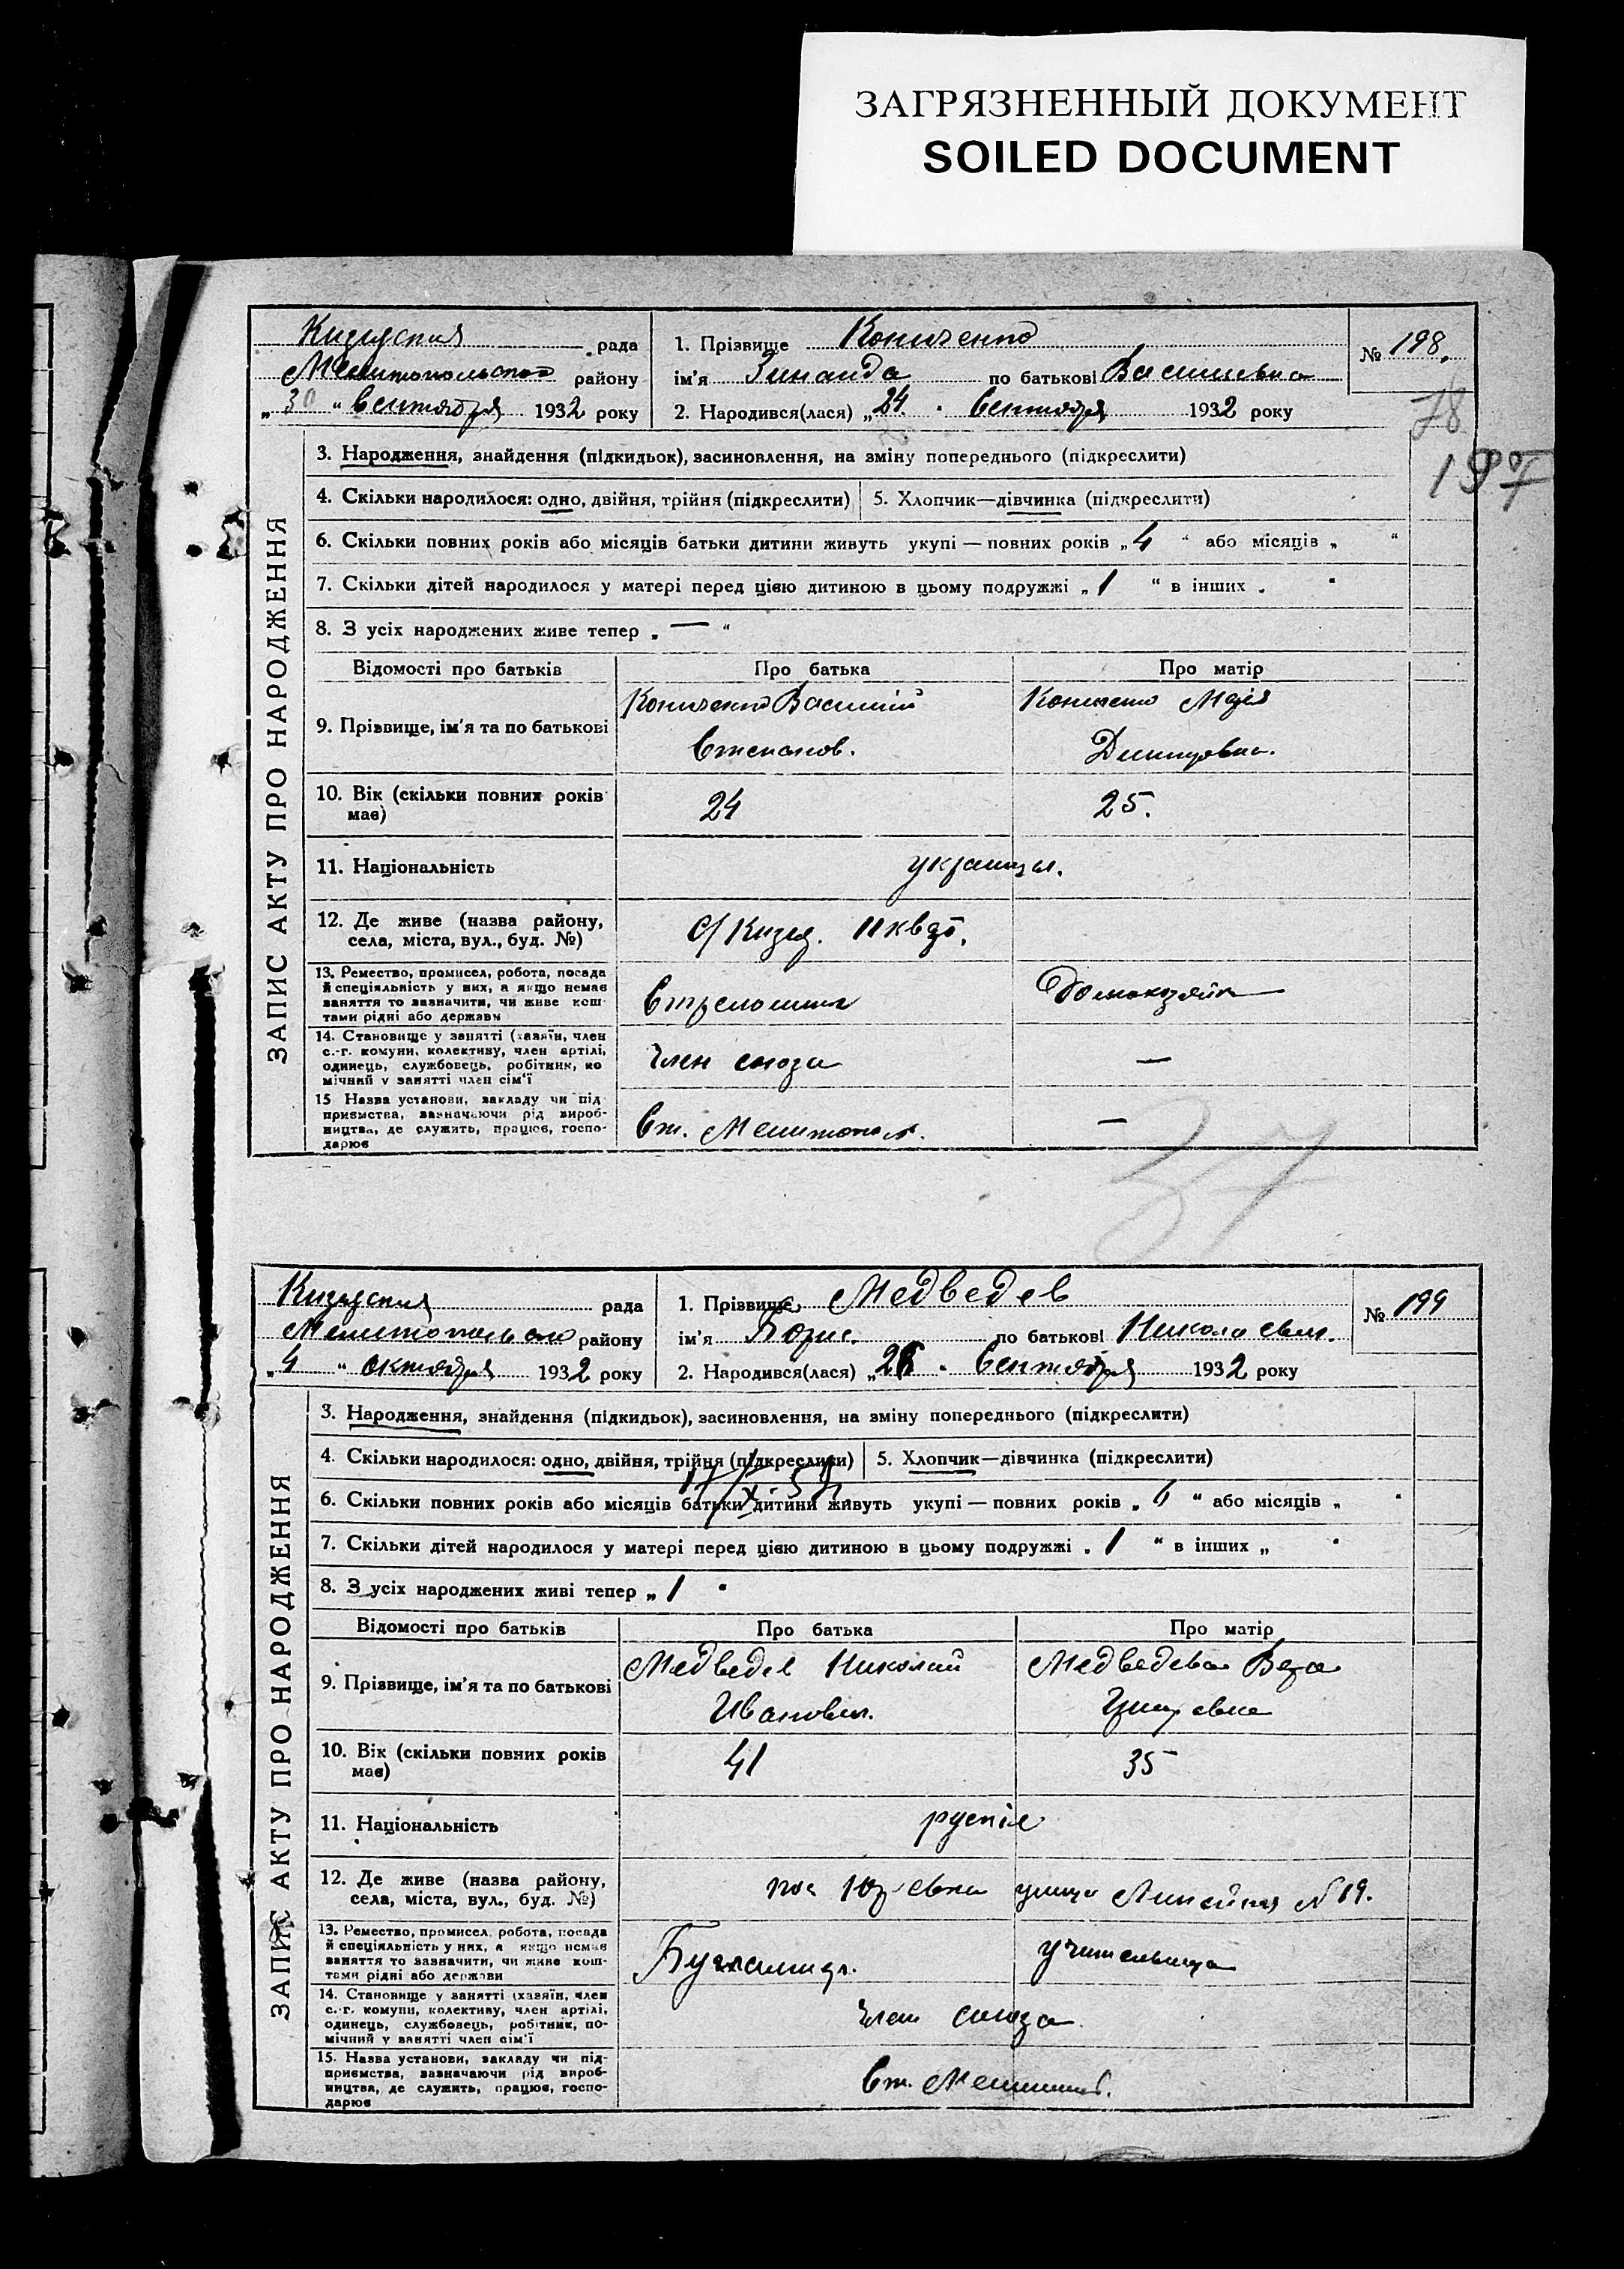 ЗАГРЯЗНЕННЫЙ ДОКУМЕНТ
SOILED DOCUMENT
рада
Мелитопольского району
„30“ Сентября 1932 року
1. Прізвище Кониченко
ім'я Зинаида по батькові Васильевна
2. Народився(лася) „24“ Сентября 1932 року
№ 198.
78
197
ЗАПИС АКТУ ПРО НАРОДЖЕННЯ
3. Народження, знайдення (підкидьок), засиновлення, на зміну попереднього (підкреслити)
4. Скільки народилося: одно, двійня, трійня (підкреслити) 5. Хлопчик—дівчинка (підкреслити)
6. Скільки повних років або місяців батьки дитини живуть укупі — повних років „4“ або місяців „ “
7. Скільки дітей народилося у матері перед цією дитиною в цьому подружжі „1“ в інших „ “
8. З усіх народжених живе тепер „—“
Відомості про батьків Про батька Про матір
9. Прізвище, ім'я та по батькові Кониченко Василий Кониченко Марія
Степанов. Дмитровна.
10. Вік (скільки повних років 24 25.
має)
11. Національність украинцы.
12. Де живе (назва району, с/Кизед. II кв
села, міста, вул., буд. №)
13. Ремество, промисел, робота, посада
й спеціяльність у них, а якщо немає
заняття то зазначити, чи живе кош-
тами рідні або держави
Домохозяйка
14. Становище у занятті (хазяїн, член
с.-г. комуни, колективу, член артілі,
одинець, службовець, робітник, по
мічний у занятті член сім'ї
член союза —
15 Назва установи, закладу чи під
приємства, зазначаючи рід вироб-
ництва, де служить, працює, госпо-
дарює
Ст. Мелитополь. —
37
рада
Мелитопольского району
„4“ октября 1932 року
1. Прізвище Медведев
ім'я Борис. по батькові Николаевич.
2. Народився(лася) „26“ Сентября 1932 року
№ 199
ЗАПИС АКТУ ПРО НАРОДЖЕННЯ
3. Народження, знайдення (підкидьок), засиновлення, на зміну попереднього (підкреслити)
4. Скільки народилося: одно, двійня, трійня (підкреслити) 5. Хлопчик—дівчинка (підкреслити)
6. Скільки повних років або місяців батьки дитини живуть укупі — повних років „6“ або місяців „ “
7. Скільки дітей народилося у матері перед цією дитиною в цьому подружжі „1“ в інших „ “
8. З усіх народжених живі тепер „1“
Відомості про батьків Про батька Про матір
9. Прізвище, ім'я та по батькові Медведев Николай Медведева Вера
Иванович.
10. Вік (скільки повних років 41 35
має)
11. Національність рускіе
12. Де живе (назва району, пос Юрьевка улица Линейная № 19.
села, міста, вул., буд. №)
13. Ремество, промисел, робота, посада
й спеціяльність у них, а якщо немає
заняття то зазначити, чи живе кош-
тами рідні або держави
Бухгалтер. учительница
14. Становище у занятті (хазяїн, член
с.-г. комуни, колективу, член артілі,
одинець, службовець, робітник, по-
мічний у занятті член сім'ї
член союза
15. Назва установи, закладу чи під-
приємства, зазначаючи рід вироб-
ництва, де служить, працює, госпо-
дарює
Ст.